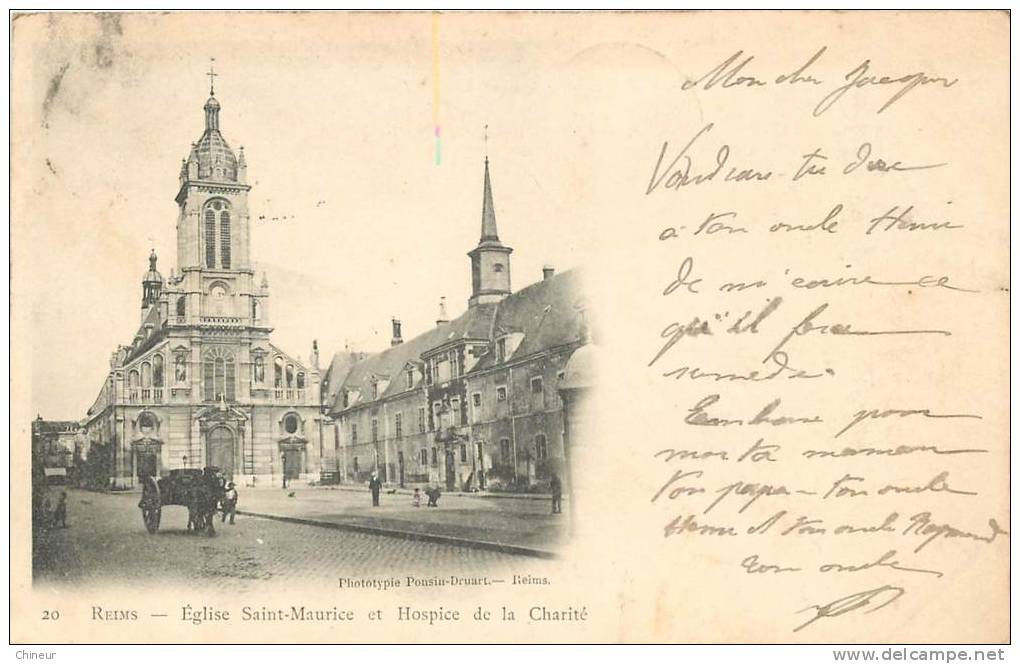 Mon cher Jacques
Voudrais-tu dire
à ton oncle Henri
de m'écrire ce
qu'il fera
samedi.
Embrasse pour
moi ta maman
ton papa - ton oncle
Henri et ton oncle Raymond
Ton oncle
Phototypie Ponsin-Druart. — Reims.
20 REIMS — Église Saint-Maurice et Hospice de la Charité
Chineur
http://www.delcampe.net